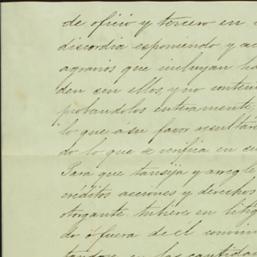 de oficio y tercero en
discordia esponiendo y ac
agravios que incluyan ha
den sin ellos, y no conten
probandolos entramente,
lo que a su favor resultan
do lo que se verifica en su
Para que transija y arregle
créditos acciones y derechos
otorgante tubiere en litig
do ó fuera de el
tandose en las cantidad